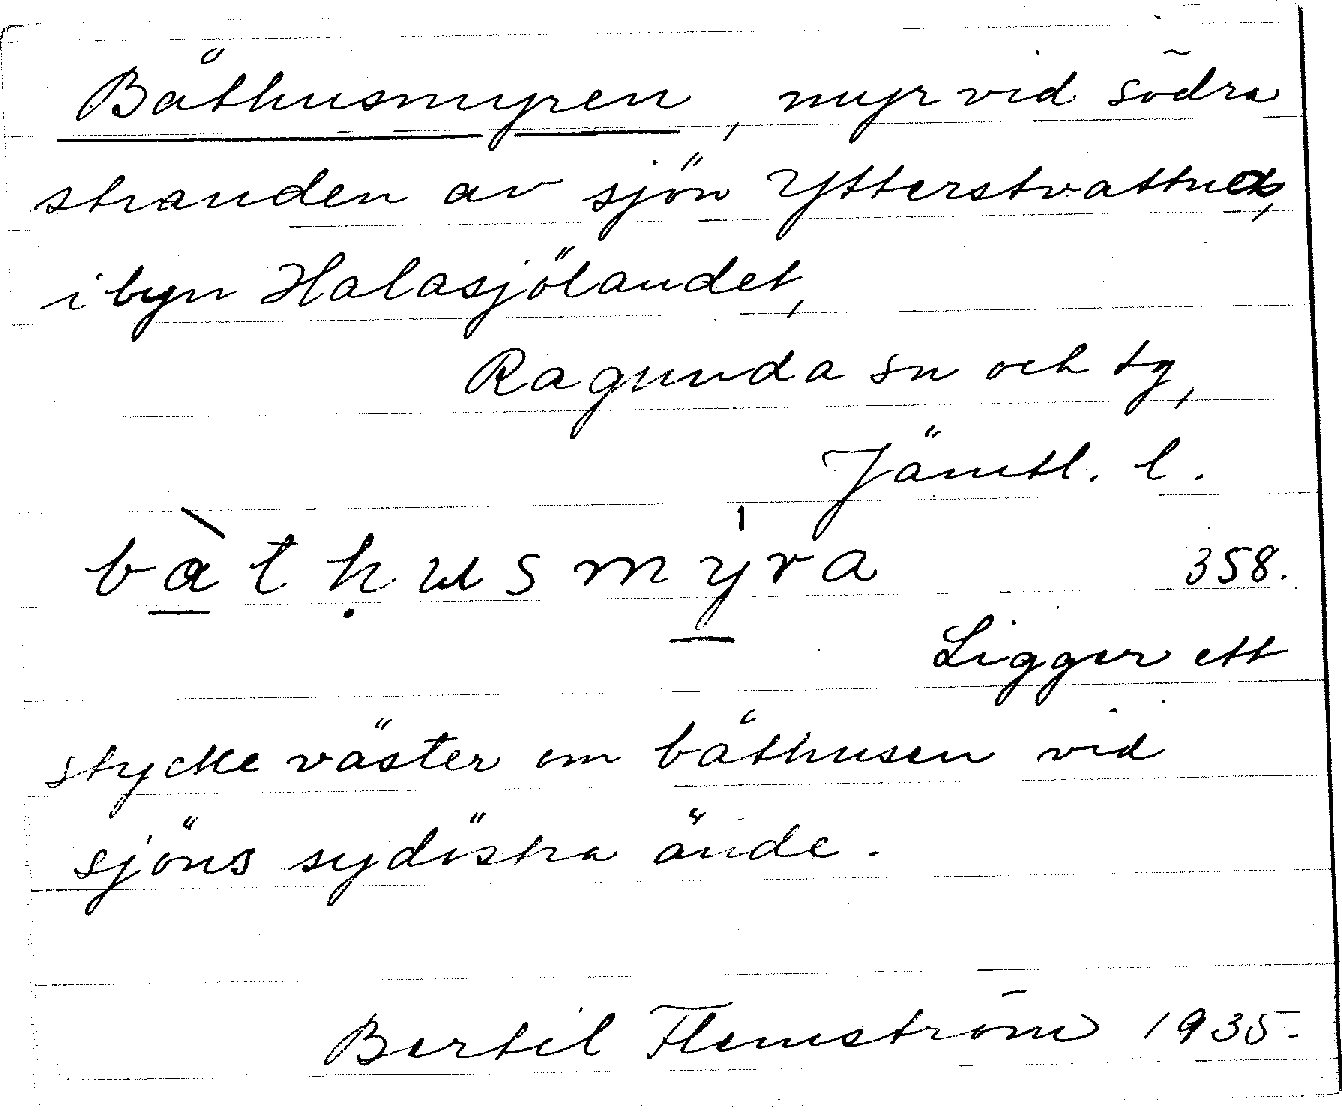 Båthusmyren, myr vid södra
stranden av sjön Ytterstvattnet,
i byn Halasjölandet,
Ragunda sn och tg,
Jämtl. l.
bàthusmyra 358.
Ligger ett
stycke väster om båthusen vid
sjöns sydöstra ände.
Bertil Flemström 1935.